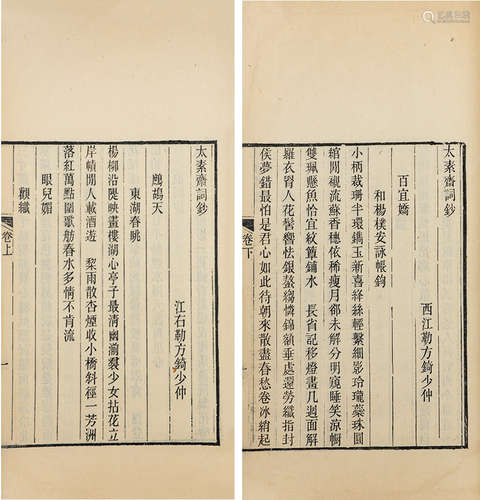 太素齋詞鈔
江石勒方錡少仲
鷓鴣天
東湖春眺
楊柳沿隄映畫樓湖心亭子最淸幽湔裠少女拈花立
岸幘閒人載酒遊 棃雨散杏煙收小橋斜徑一芳洲
落紅萬點圍歌舫春水多情不肯流
眼兒媚
觀織
卷上
一
太素齋詞鈔
西江勒方錡少仲
百宜嬌
和楊樸安詠帳鉤
小柄裁珊半環鐫玉新喜絳絲輕繫細影玲瓏蘂珠圓
綰閒襯流蘇香穗依稀瘦月卻未解分明窺睡笑涼
雙佩懸魚恰宜紋簟鋪水 長省記移燈畫几迴面解
羅衣人花髻響怯銀縐憐錦額垂處還勞纖指封
侯夢錯最怕是君心如此待朝來散盡春愁卷冰綃起
卷下